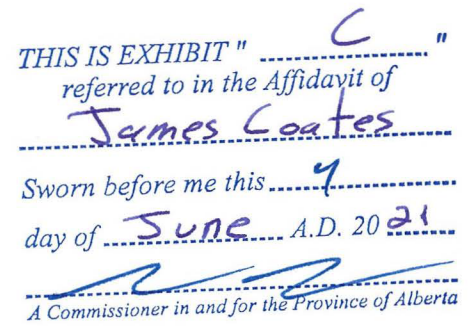 THIS IS EXHIBIT " C "
referred to in the Affidavit of
James Coates
Sworn before me this 4
day of June A.D. 20 21
A Commissioner in and for the Province of Alberta